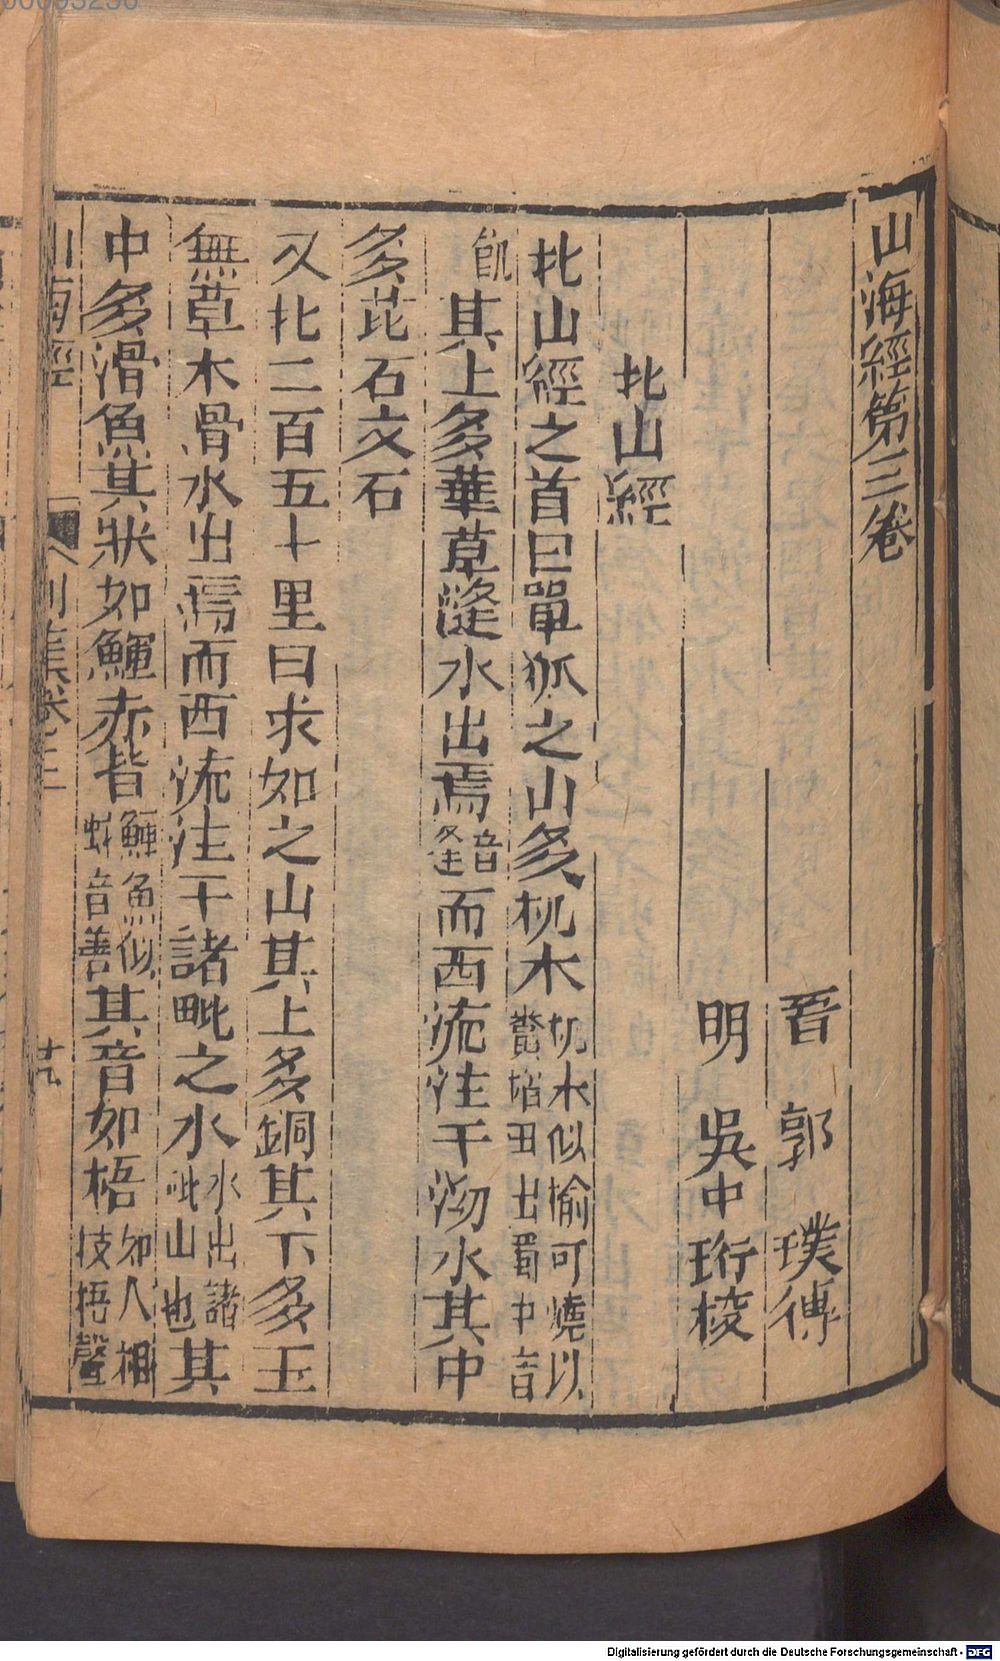 山海經第三卷
晉　郭　璞傳
明　吳中珩校
北山經
北山經之首曰單狐之山多机木机木似榆可燒以糞稻田出蜀中音
飢其上多華草漨水出焉音逢而西流注于泑水其中
多芘石文石
又北二百五十里曰求如之山其上多銅其下多玉
無草木滑水出焉而西流注于諸毗之水水出諸毗山也其
中多滑魚其狀如鱓赤背鱓魚似蛇音善其音如梧如人相枝梧聲
山海經
卷之三
Digitalisierung gefördert durch die Deutsche Forschungsgemeinschaft - DFG